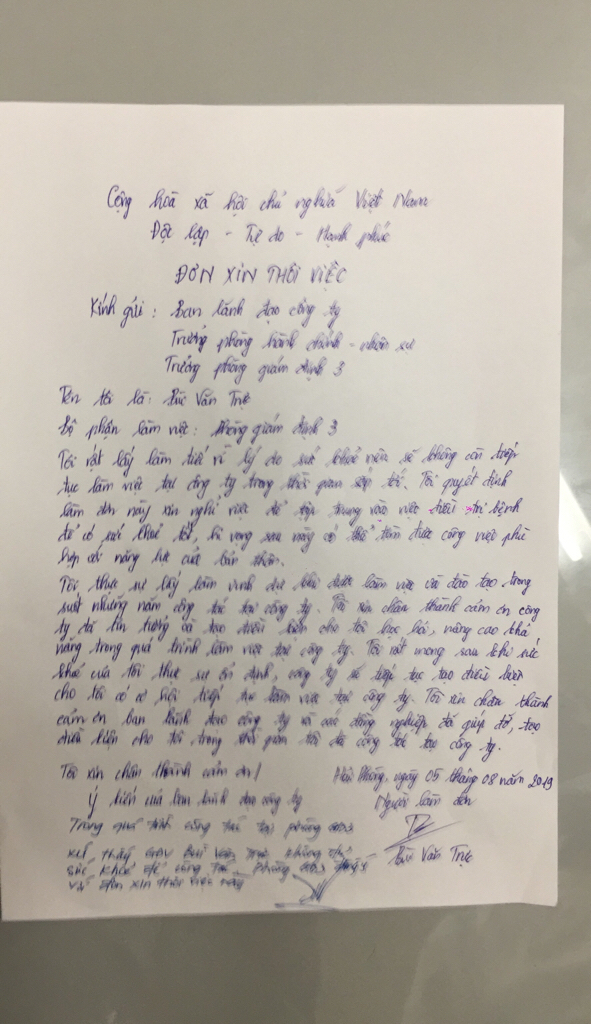 Cộng hoà xã hội chủ nghĩa Việt Nam
Độc lập - Tự do - Hạnh phúc
ĐƠN XIN THÔI VIỆC
Kính gửi : Ban lãnh đạo công ty
Trưởng phòng hành chính - nhân sự
Trưởng phòng giám định 3
Tên tôi là: Bùi Văn Trực
Bộ phận làm việc: Phòng giám định 3
Tôi rất lấy làm tiếc vì lý do sức khoẻ nên sẽ không còn tiếp
tục làm việc tại công ty trong thời gian sắp tới. Tôi quyết định
làm đơn này xin nghỉ việc để tập trung vào việc điều trị bệnh
để có sức khoẻ tốt, hi vọng sau này có thể làm được công việc phù
hợp với năng lực của bản thân.
Tôi thực sự lấy làm vinh dự khi được làm việc và đào tạo trong
suốt những năm công tác tại công ty. Tôi xin chân thành cảm ơn công
ty đã tin tưởng và tạo điều kiện cho tôi học hỏi, nâng cao khả
năng trong quá trình làm việc tại công ty. Tôi rất mong sau khi sức
khoẻ của tôi thực sự ổn định, công ty sẽ tiếp tục tạo điều kiện
cho tôi có cơ hội tiếp tục làm việc tại công ty. Tôi xin chân thành
cảm ơn ban lãnh đạo công ty và các đồng nghiệp đã giúp đỡ, tạo
điều kiện cho tôi trong thời gian tôi đã công tác tại công ty.
Tôi xin chân thành cảm ơn! Hải Phòng, ngày 05 tháng 08 năm 2019
Ý kiến của ban lãnh đạo công ty Người làm đơn
Trong quá trình công tác tại phòng
xét thấy Bùi Văn Trực không đủ
sức khoẻ để công tác Phòng Bùi Văn Trực
đơn xin thôi việc này